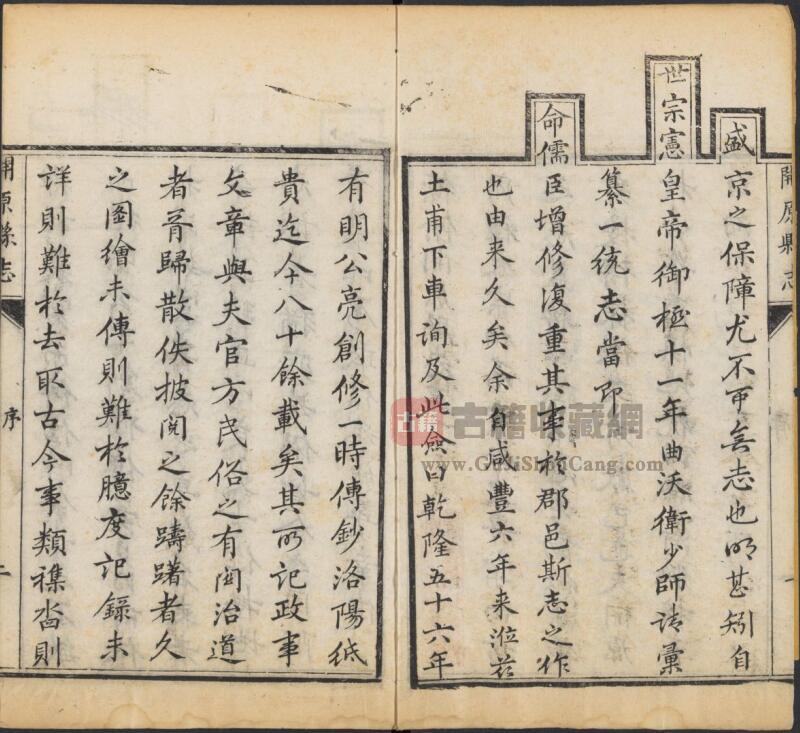 開原縣志
盛京之保障尤不可無志也明甚矧自
世宗憲皇帝御極十一年曲沃衛少師請彙
纂一統志當即
命儒臣增修復重其事於郡邑斯志之作
也由來久矣余自咸豐六年来涖茲
土甫下車詢及此僉曰乾隆五十六年
有明公亮創修一時傳鈔洛陽紙
貴迄今八十餘載矣其所記政事
文章與夫官方民俗之有関治道
者胥歸散佚披閱之餘躊躇者久
之圖繪未傳則難於臆度記錄未
詳則難於去取古今事類襍畓則
開原縣志
序
二
古籍
古籍收藏網
www.GuJiShouCang.com